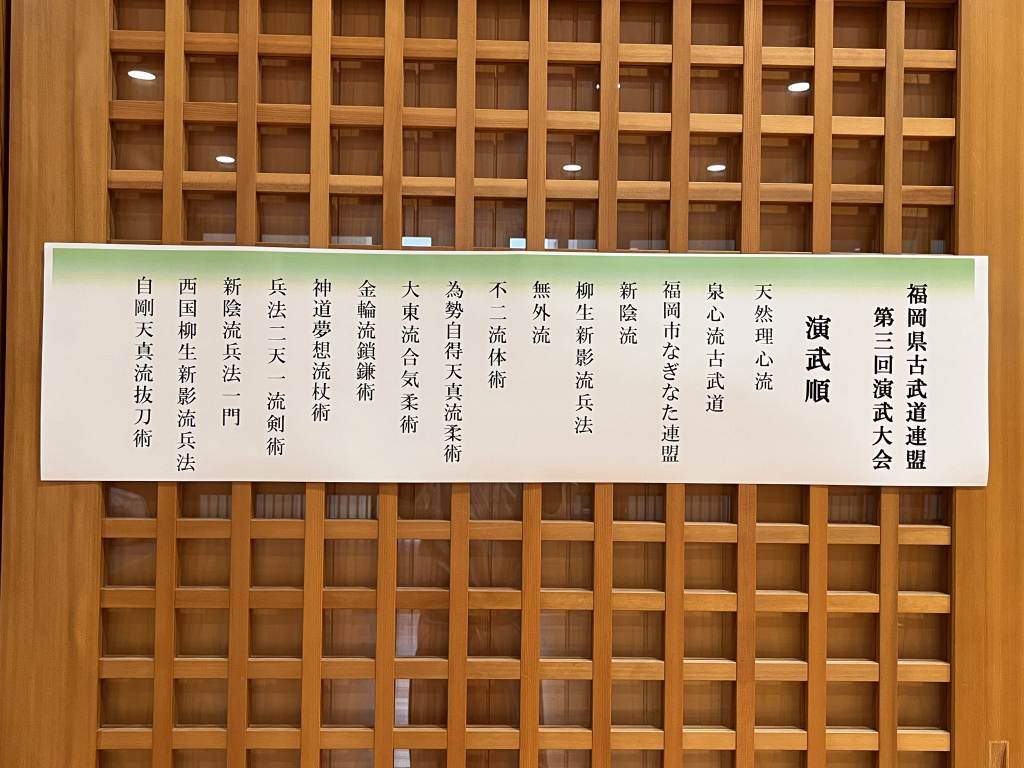 福岡県古武道連盟
第三回演武大会
演武順
天然理心流
泉心流古武道
福岡市なぎなた連盟
新陰流
柳生新影流兵法
無外流
不二流体術
為勢自得天真流柔術
大東流合気柔術
金輪流鎖鎌術
神道夢想流杖術
兵法二天一流剣術
新陰流兵法一門
西国柳生新影流兵法
自剛天真流抜刀術